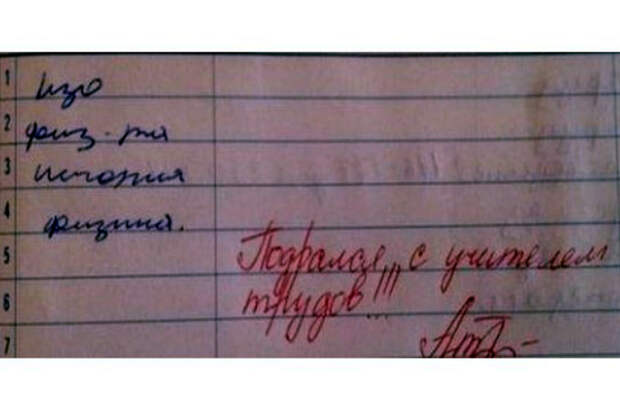 1 изо
2 физ-ра
3 история
4 физика.
5 Подрался!!! с учителем
6 трудов!!!
7